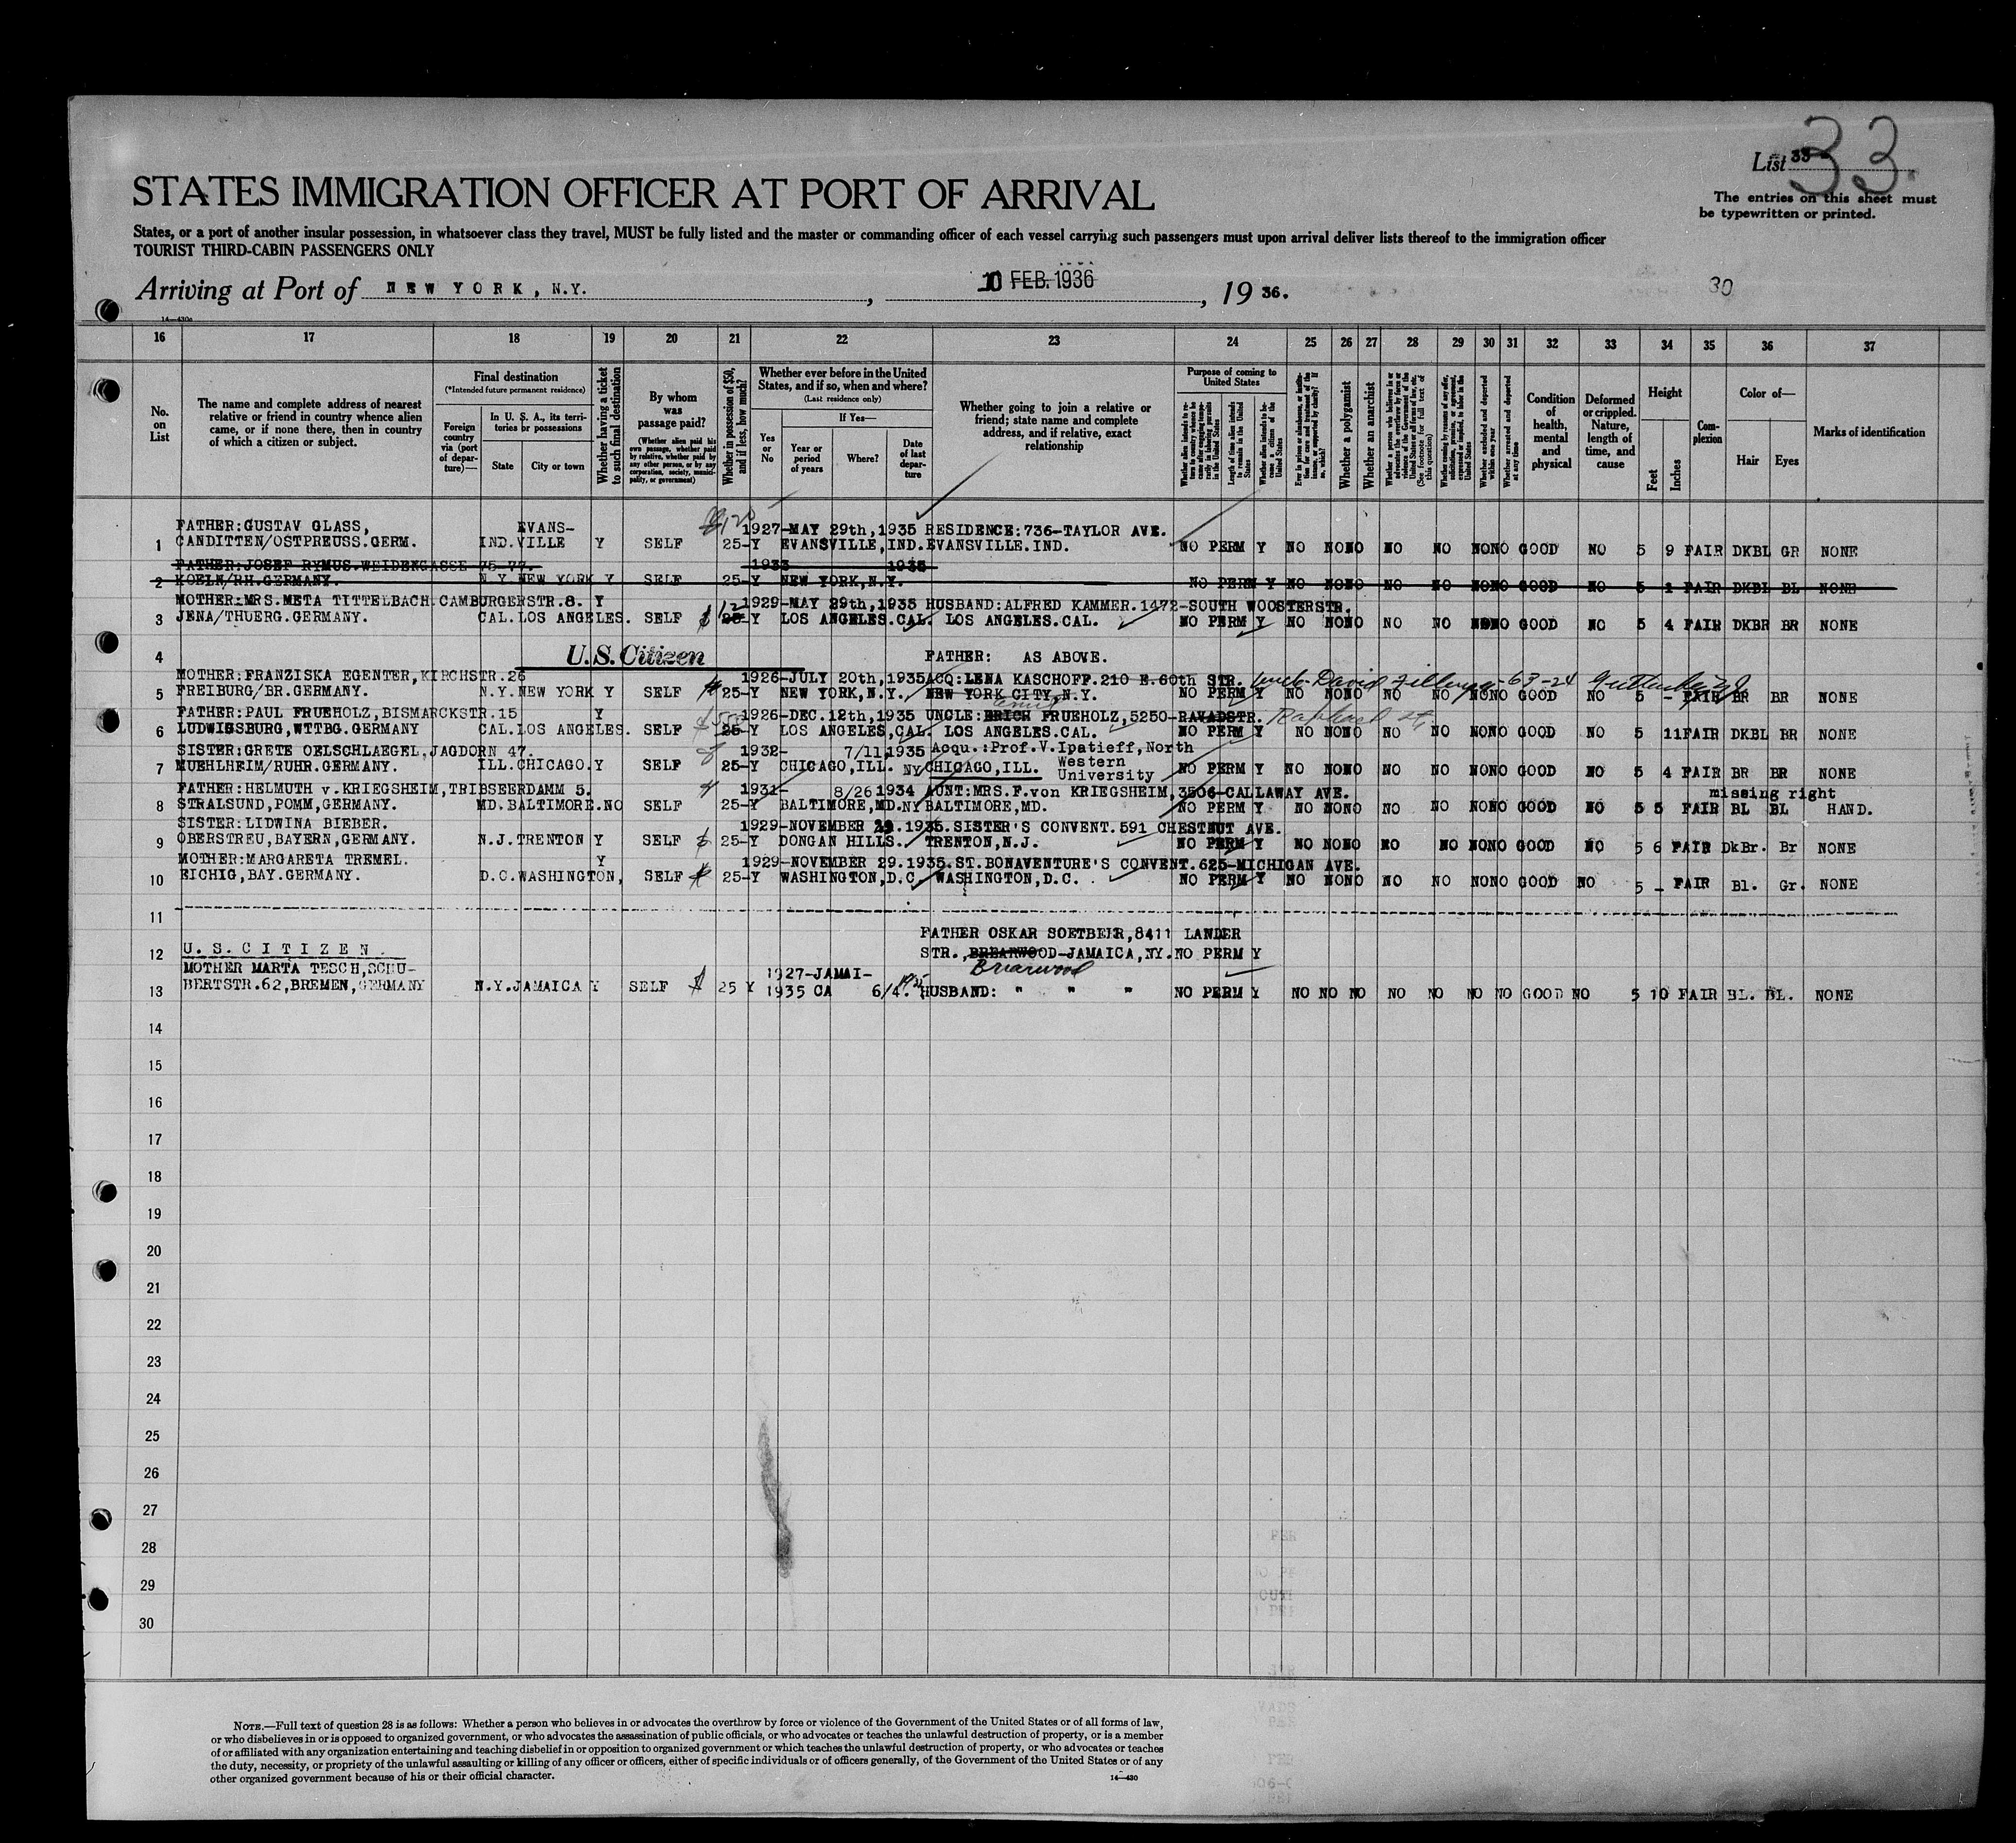 33
List 33
STATES IMMIGRATION OFFICER AT PORT OF ARRIVAL
The entries on this sheet must
be typewritten or printed.
States, or a port of another insular possession, in whatsoever class they travel, MUST be fully listed and the master or commanding officer of each vessel carrying such passengers must upon arrival deliver lists thereof to the immigration officer
TOURIST THIRD-CABIN PASSENGERS ONLY
Arriving at Port of NEW YORK, N.Y. , 10 FEB. 1936 , 19 36.
30
14—430c
16 17 18 19 20 21 22 23 24 25 26 27 28 29 30 31 32 33 34 35 36 37
No. on List
The name and complete address of nearest relative or friend in country whence alien came, or if none there, then in country of which a citizen or subject.
Final destination
(*Intended future permanent residence)
Foreign country via (port of departure)—
In U. S. A., its territories or possessions
State
City or town
Whether having a ticket to such final destination
By whom was passage paid?
(Whether alien paid his own passage, whether paid by relative, whether paid by any other person, or by any corporation, society, municipality, or government)
Whether in possession of $50, and if less, how much?
Whether ever before in the United States, and if so, when and where?
(Last residence only)
Yes or No
If Yes—
Year or period of years
Where?
Date of last departure
Whether going to join a relative or friend; state name and complete address, and if relative, exact relationship
Purpose of coming to United States
Whether a polygamist
Whether an anarchist
Condition of health, mental and physical
Deformed or crippled. Nature, length of time, and cause
Height
Feet
Inches
Complexion
Color of—
Hair
Eyes
Marks of identification
FATHER:GUSTAV GLASS, EVANS- 1927-MAY 29th,1935 RESIDENCE:736-TAYLOR AVE.
1 CANDITTEN/OSTPREUSS.GERM. IND.VILLE Y SELF 25-Y EVANSVILLE,IND.EVANSVILLE.IND. NO PERM Y NO NONO NO NO NONO GOOD NO 5 9 FAIR DKBL GR NONE
FATHER:JOSEF RYMUS.WEIDENGASSE 75-77. 1933 1935
2 KOELN/RH.GERMANY. N.Y.NEW YORK Y SELF 25-Y NEW YORK,N.Y. NO PERM Y NO NONO NO NO NONO GOOD NO 5 1 FAIR DKBL BL NONE
MOTHER:MRS.META TITTELBACH CAMBURGERSTR.8. Y 1929-MAY 29th,1935 HUSBAND:ALFRED KAMMER.1472-SOUTH WOOSTERSTR.
3 JENA/THUERG.GERMANY. CAL.LOS ANGELES. SELF 25-Y LOS ANGELES.CAL. LOS ANGELES.CAL. NO PERM Y NO NONO NO NO NONO GOOD NO 5 4 FAIR DKBR BR NONE
4 U.S. Citizen FATHER: AS ABOVE.
MOTHER:FRANZISKA EGENTER,KIRCHSTR.26 1926-JULY 20th,1935ACQ:LENA KASCHOFF.210 E.60th STR. David 63-24
5 FREIBURG/BR.GERMANY. N.Y.NEW YORK Y SELF 25-Y NEW YORK,N.Y. NEW YORK CITY,N.Y. NO PERM Y NO NONO NO NO NONO GOOD NO 5 - FAIR BR BR NONE
FATHER:PAUL FRUEHOLZ,BISMARCKSTR.15 Y 1926-DEC.12th,1935 UNCLE:ERICH FRUEHOLZ,5250-RAVADSTR. Raphael St.
6 LUDWIGSBURG,WTTBG.GERMANY CAL.LOS ANGELES. SELF 25-Y LOS ANGELES,CAL. LOS ANGELES.CAL. NO PERM Y NO NONO NO NO NONO GOOD NO 5 11FAIR DKBL BR NONE
SISTER:GRETE OELSCHLAEGEL,JAGDORN 47. 1932- 7/11,1935 Acqu.:Prof.V.Ipatieff,North
7 MUEHLHEIM/RUHR.GERMANY. ILL.CHICAGO.Y SELF 25-Y CHICAGO,ILL. NY CHICAGO,ILL. Western University NO PERM Y NO NONO NO NO NONO GOOD NO 5 4 FAIR BR BR NONE
FATHER:HELMUTH v.KRIEGSHEIM,TRIBSEERDAMM 5. 1931- 8/26 1934 AUNT:MRS.F.von KRIEGSHEIM,3506-CALLAWAY AVE. missing right
8 STRALSUND,POMM,GERMANY. MD.BALTIMORE.NO SELF 25-Y BALTIMORE,MD.NY BALTIMORE,MD. NO PERM Y NO NONO NO NO NONO GOOD NO 5 5 FAIR BL BL HAND.
SISTER:LIDWINA BIEBER. 1929-NOVEMBER 29.1935.SISTER'S CONVENT.591 CHESTNUT AVE.
9 OBERSTREU,BAYERN,GERMANY. N.J.TRENTON Y SELF 25-Y DONGAN HILLS. TRENTON,N.J. NO PERM Y NO NONO NO NO NONO GOOD NO 5 6 FAIR DkBr. Br NONE
MOTHER:MARGARETA TREMEL. Y 1929-NOVEMBER 29.1935.ST.BONAVENTURE'S CONVENT.625-MICHIGAN AVE.
10 EICHIG,BAY.GERMANY. D.C.WASHINGTON, SELF 25-Y WASHINGTON,D.C. WASHINGTON,D.C. NO PERM Y NO NONO NO NO NONO GOOD NO 5 - FAIR Bl. Gr. NONE
11
FATHER OSKAR SOETBEIR,8411 LANDER
12 U.S.CITIZEN. STR.,BREARWOOD-JAMAICA,NY.NO PERM Y
Briarwood
MOTHER MARTA TESCH,SCHU- 1927-JAMAI-
13 BERTSTR.62,BREMEN,GERMANY N.Y.JAMAICA Y SELF 25 Y 1935 CA 6/4. HUSBAND: " " " NO PERM Y NO NO NO NO NO NO NO GOOD NO 5 10 FAIR BL. BL. NONE
14
15
16
17
18
19
20
21
22
23
24
25
26
27
28
29
30
NOTE.—Full text of question 28 is as follows: Whether a person who believes in or advocates the overthrow by force or violence of the Government of the United States or of all forms of law,
or who disbelieves in or is opposed to organized government, or who advocates the assassination of public officials, or who advocates or teaches the unlawful destruction of property, or is a member
of or affiliated with any organization entertaining and teaching disbelief in or opposition to organized government or which teaches the unlawful destruction of property, or who advocates or teaches
the duty, necessity, or propriety of the unlawful assaulting or killing of any officer or officers, either of specific individuals or of officers generally, of the Government of the United States or of any
other organized government because of his or their official character.
14—430